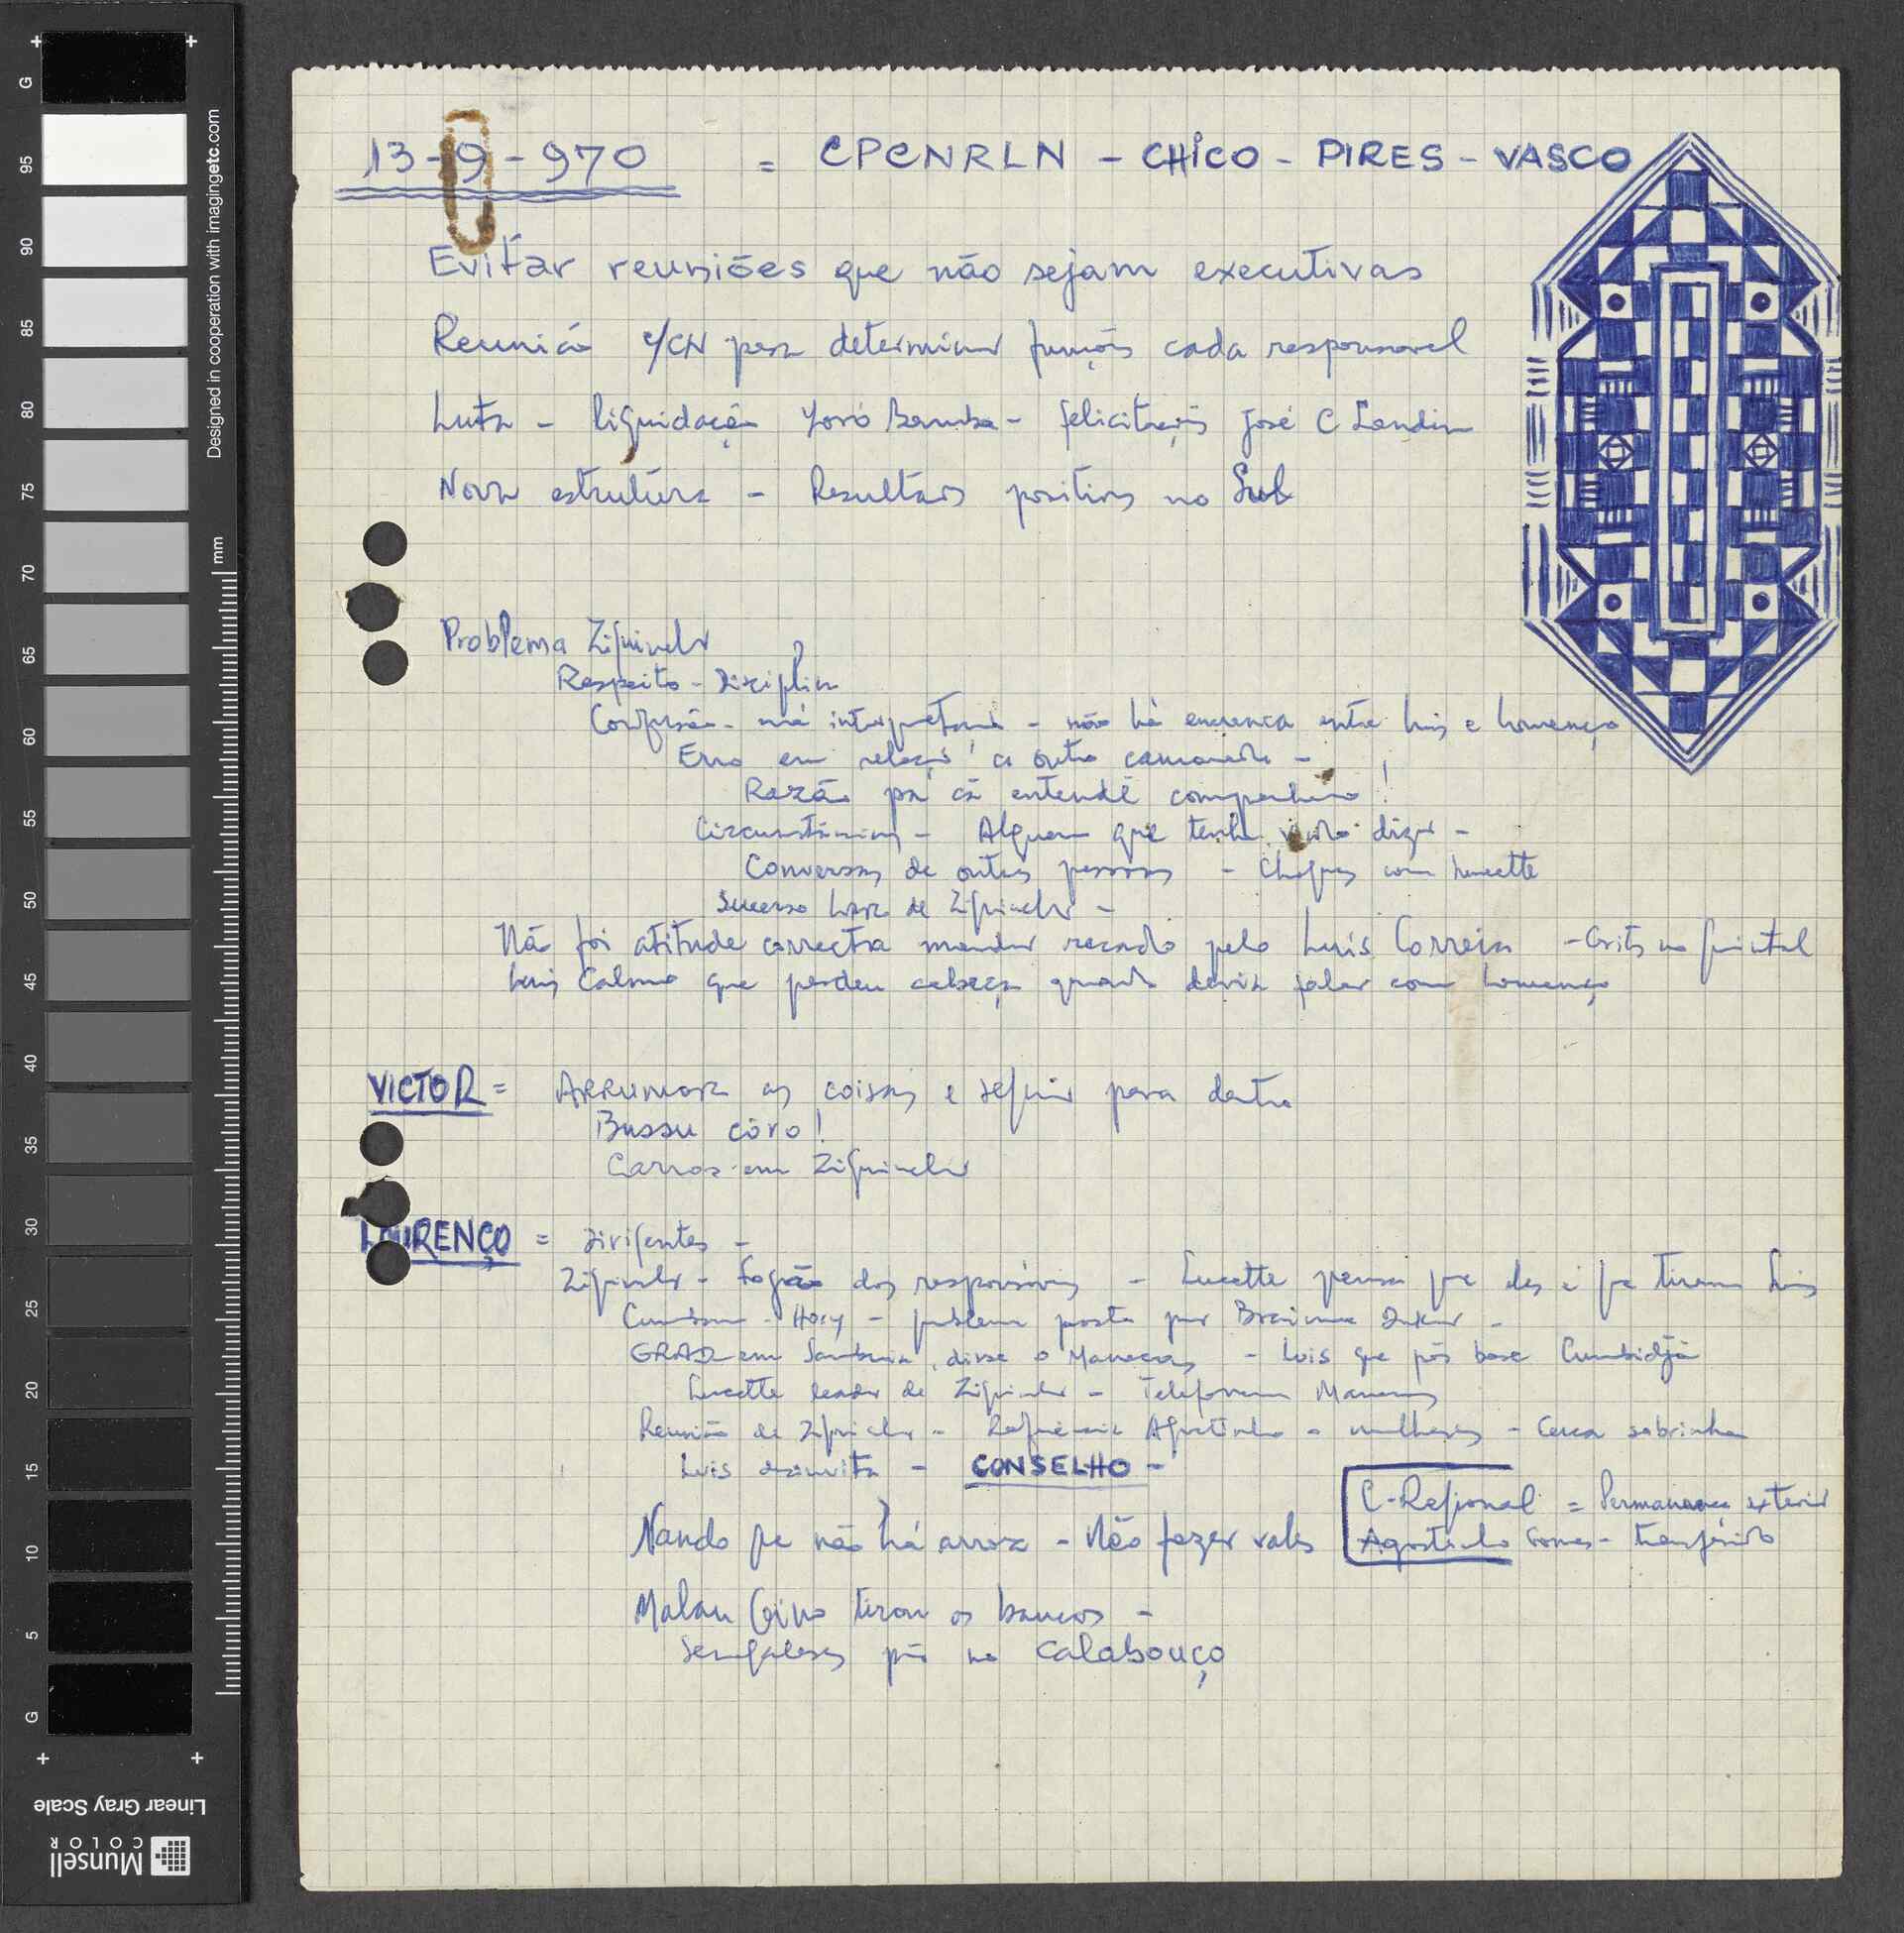 13-9-970 = CPCNRLN - CHICO - PIRES - VASCO
Evitar reuniões que não sejam executivas
Reunião c/CN para determinar funções cada responsavel
Luta - liquidação Yoró Bamba - felicitações José C Landim
Nova estrutura - Resultados positivos no Sul
Problema Ziguinchor
Respeito - Disciplina
Confusão - má interpretação - não há encrenca entre Luis e Lourenço
Erro em relação a outro camarada -
Razão pa cá entendê companheiro!
Circunstâncias - Alguem que tenha vindo dizer -
Conversas de outras pessoas - Choques com Lucette
Sucesso Lar de Ziguinchor -
Não foi atitude correcta mandar recado pelo Luís Correia - Grits no quintal
Luis Calmo que perdeu cabeça quando devia falar com Lourenço
VICTOR = Arrumar as coisas e seguir para dentro
Bussu côro!
Carros em Ziguinchor
LOURENÇO = Dirigentes -
Ziguinchor - Fogão dos responsáveis - Lucette pensa que eles é que tiram Luis
- Hory - problema posto por Braima
GRAD em Sambuia, disse o Manecas - Luis que pôs base Cumbidjã
Lucette leader de Ziguinchor - Telefonema Manecas
Reunião de Ziguinchor - Agostinho - mulheres - sobrinha
Luis - CONSELHO -
Nando que não há arroz - Não fazer vales
C-Regional = Permanencia exterior
Agostinho Gomes - transferido
Malan Gino tirou os bancos -
Senegaleses pôs no calabouço
G
95
90
85
80
75
70
65
60
55
50
45
40
35
30
25
20
15
10
5
G
mm
Designed in cooperation with imagingetc.com
Linear Gray Scale
Munsell
COLOR